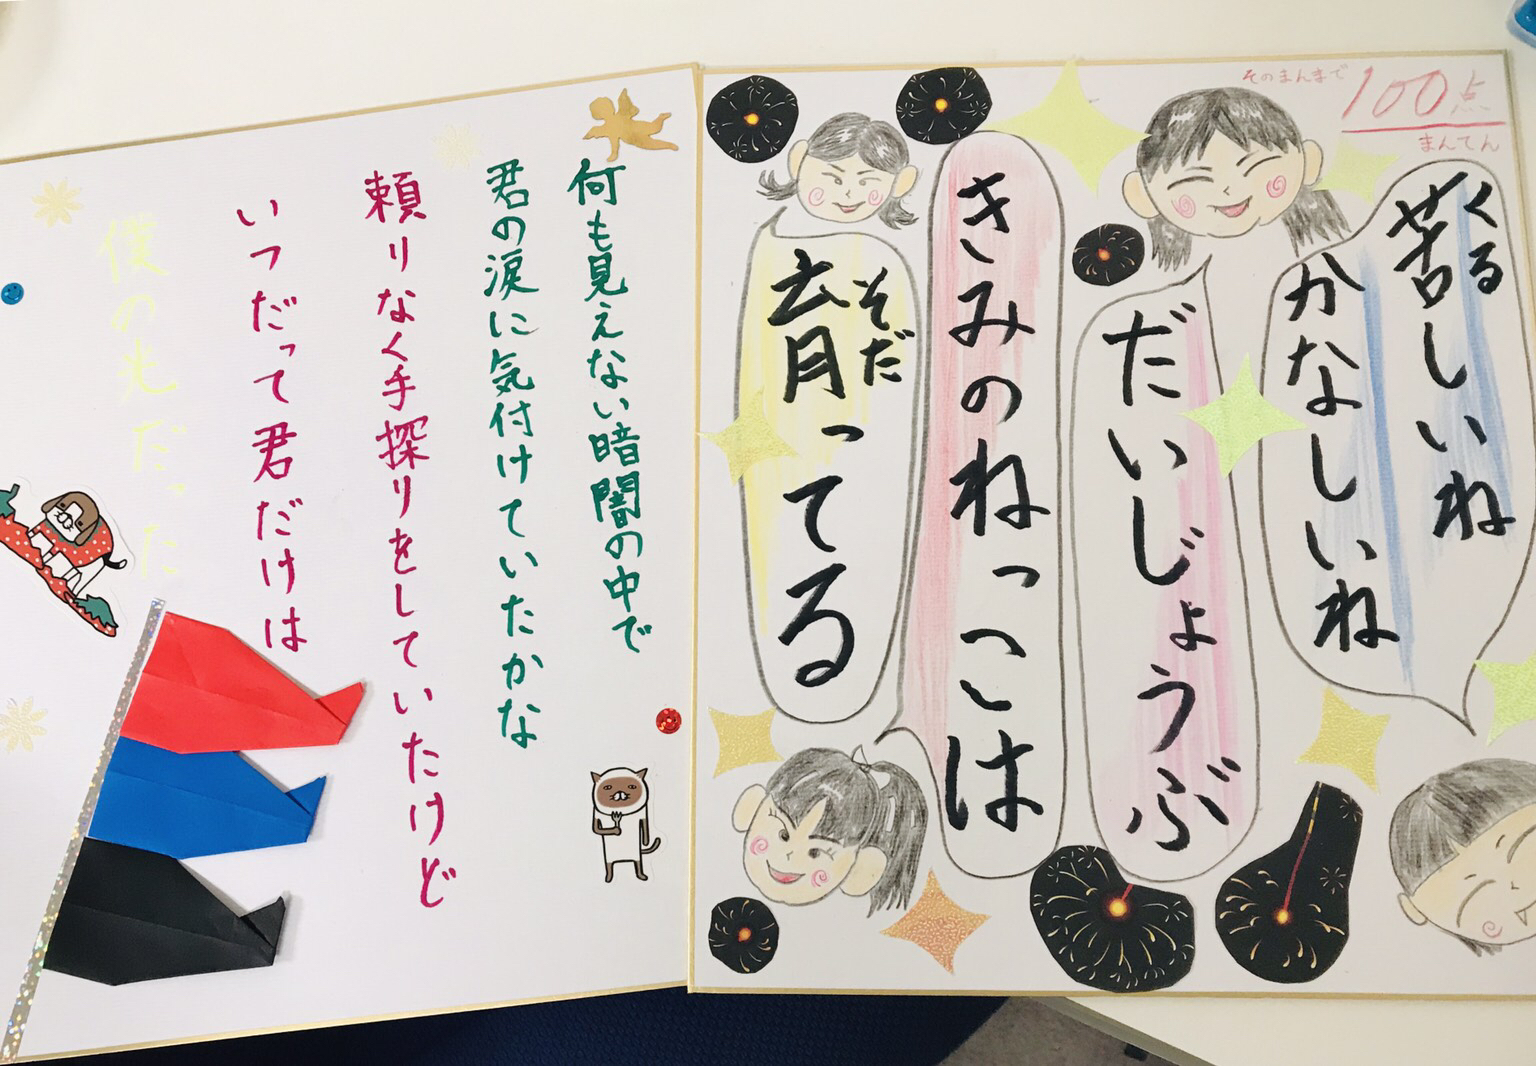 そのまんまで
100点
まんてん
くる
苦しいね
かなしいね
だいじょうぶ
きみのねっこは
そだ
育ってる
何も見えない暗闇の中で
君の涙に気付けていたかな
頼りなく手探りをしていたけど
いつだって君だけは
僕の光だった